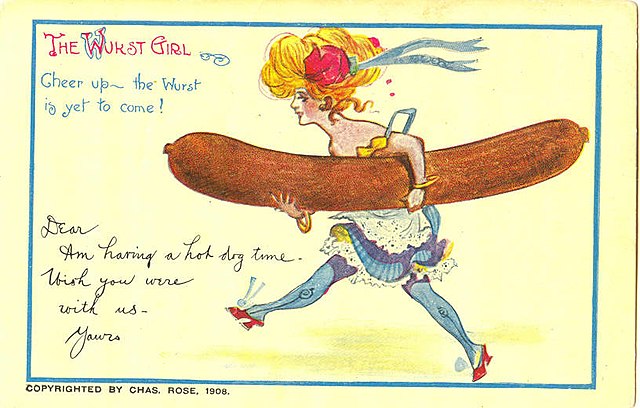 The Wurst Girl
Cheer up~ the Wurst
is yet to come!
Dear
Am having a hot dog time.
Wish you were
with us-
Yours
COPYRIGHTED BY CHAS. ROSE, 1908.